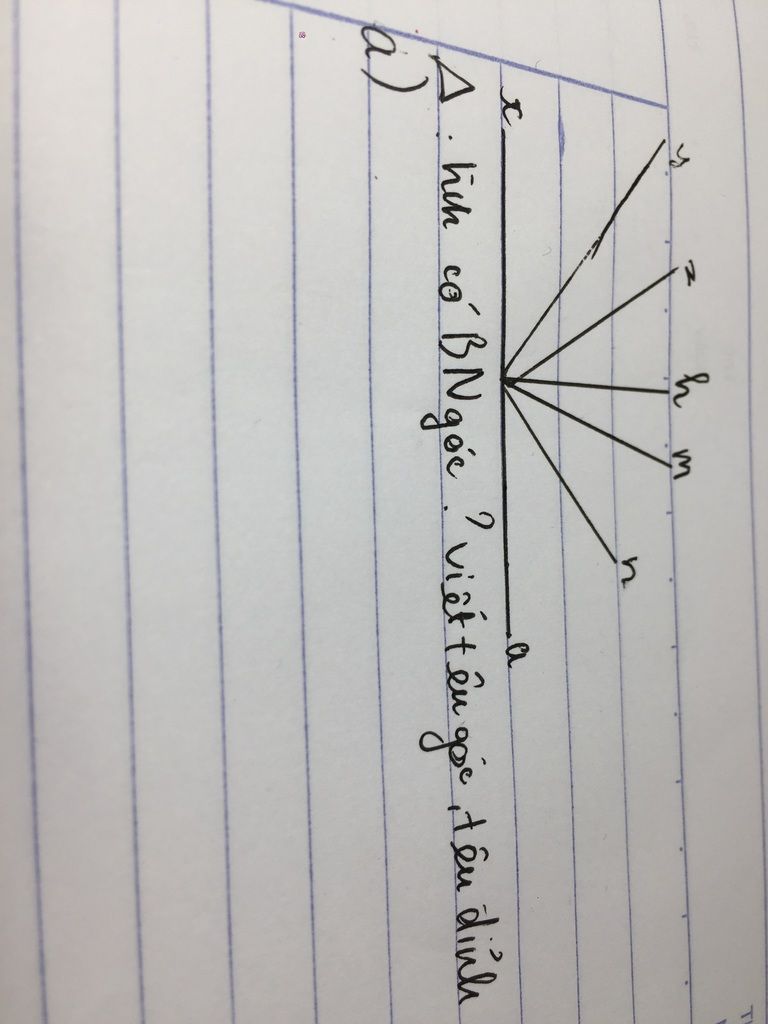 y z h m n
x a
Δ. tính có BN góc? viết tên góc, tên đỉnh
a)